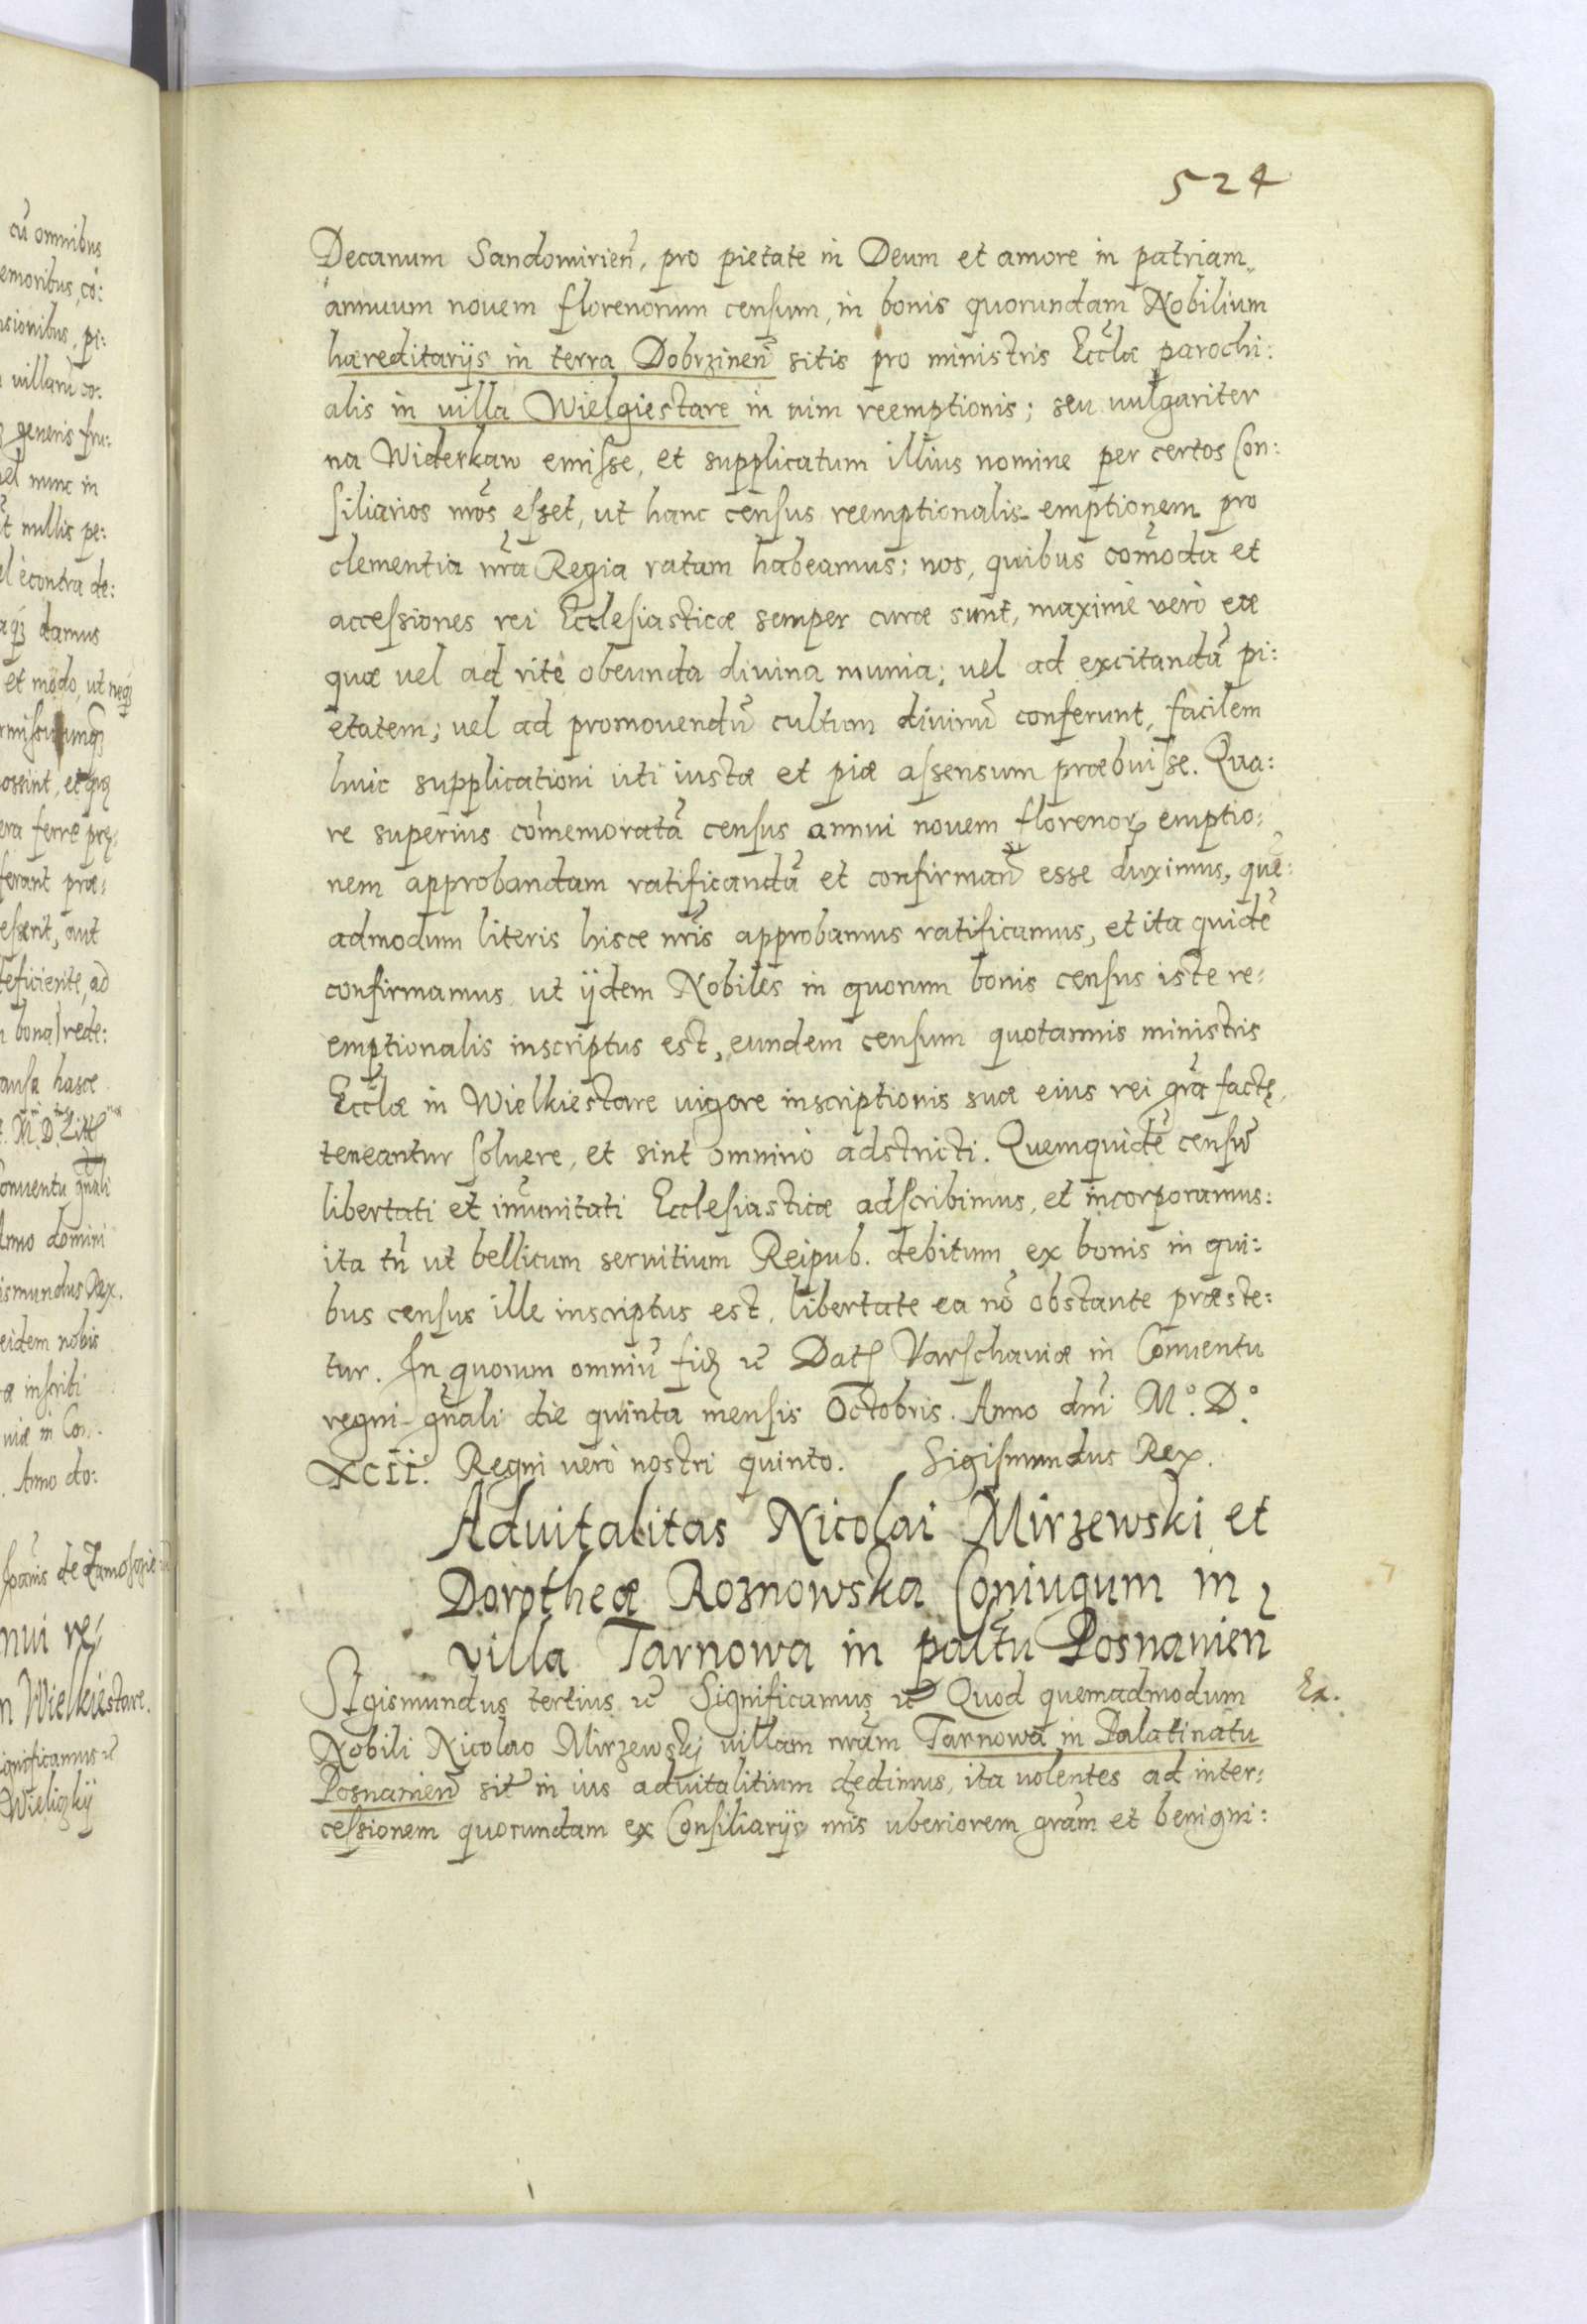 524
Decanum Sandomirien̄, pro pietate in Deum et amore in patriam
annuum novem florenorum censum, in bonis quorundam Nobilium
hæreditarijs in terra Dobrzinen̄ sitis pro ministris Ecclæ parochi:
alis in villa Wielgiestare in vim reemptionis; seu vulgariter
na Widerkaw emisse, et supplicatum illius nomine per certos Con:
siliarios nr̄os esset, ut hanc census reemptionalis emptionem pro
clementia nr̄a Regia ratam habeamus: nos, quibus com̄oda et
accessiones rei Ecclesiasticæ semper curæ sunt, maximè verò eæ
quæ vel ad ritè obeunda divina munia; vel ad excitandā pi:
etatem; vel ad promovendū cultum divinū conferunt, facilem
huic supplicationi uti iustæ et piæ assensum præbuisse. Qua:
re superius com̄emoratā census annui novem florenorꝝ emptio:
nem approbandam ratificandā et confirman̄ esse duximus, quē:
admodum literis hisce nr̄is approbamus ratificamus, et ita quidē
confirmamus ut ijdem Nobiles in quorum bonis census iste re:
emptionalis inscriptus est, eundem censum quotannis ministris
Ecclæ in Wielkiestare vigore inscriptionis suæ eius rei gr̄a factę
teneantur solvere, et sint omninò adstricti. Quemquidē censū
libertati et im̄unitati Ecclesiasticæ adscribimus, et incorporamus:
ita tn̄ ut bellicum servitium Reipub. debitum ex bonis in qui:
bus census ille inscriptus est, libertate ea nō obstante præste:
tur. In quorum omniū fidꝫ ꝛc̄ Datꝭ Varschaviæ in Conventu
regni gn̄ali die quinta mensis Octobris. Anno dn̄i M°. D°.
XCII. Regni verò nostri quinto. Sigismundus Rex.
Advitalitas Nicolai Mirzewski et
Dorotheæ Roznowska Coniugum in
villa Tarnowa in paltū Posnanien̄
Sigismundus tertius ꝛc̄ Significamus ꝛc̄ Quod quemadmodum
Ex.
Nobili Nicolao Mirzewskj villam nr̄am Tarnowa in Palatinatu
Posnanien̄ sit̄ in ius advitalitium dedimus, ita volentes ad inter:
cessionem quorundam ex Consiliarijs nr̄is uberiorem gr̄am et benigni: